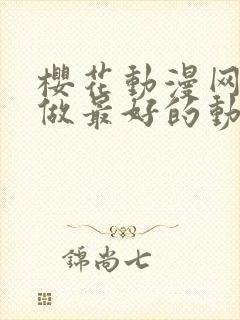 櫻花動漫网
做最好的動
錦尚七